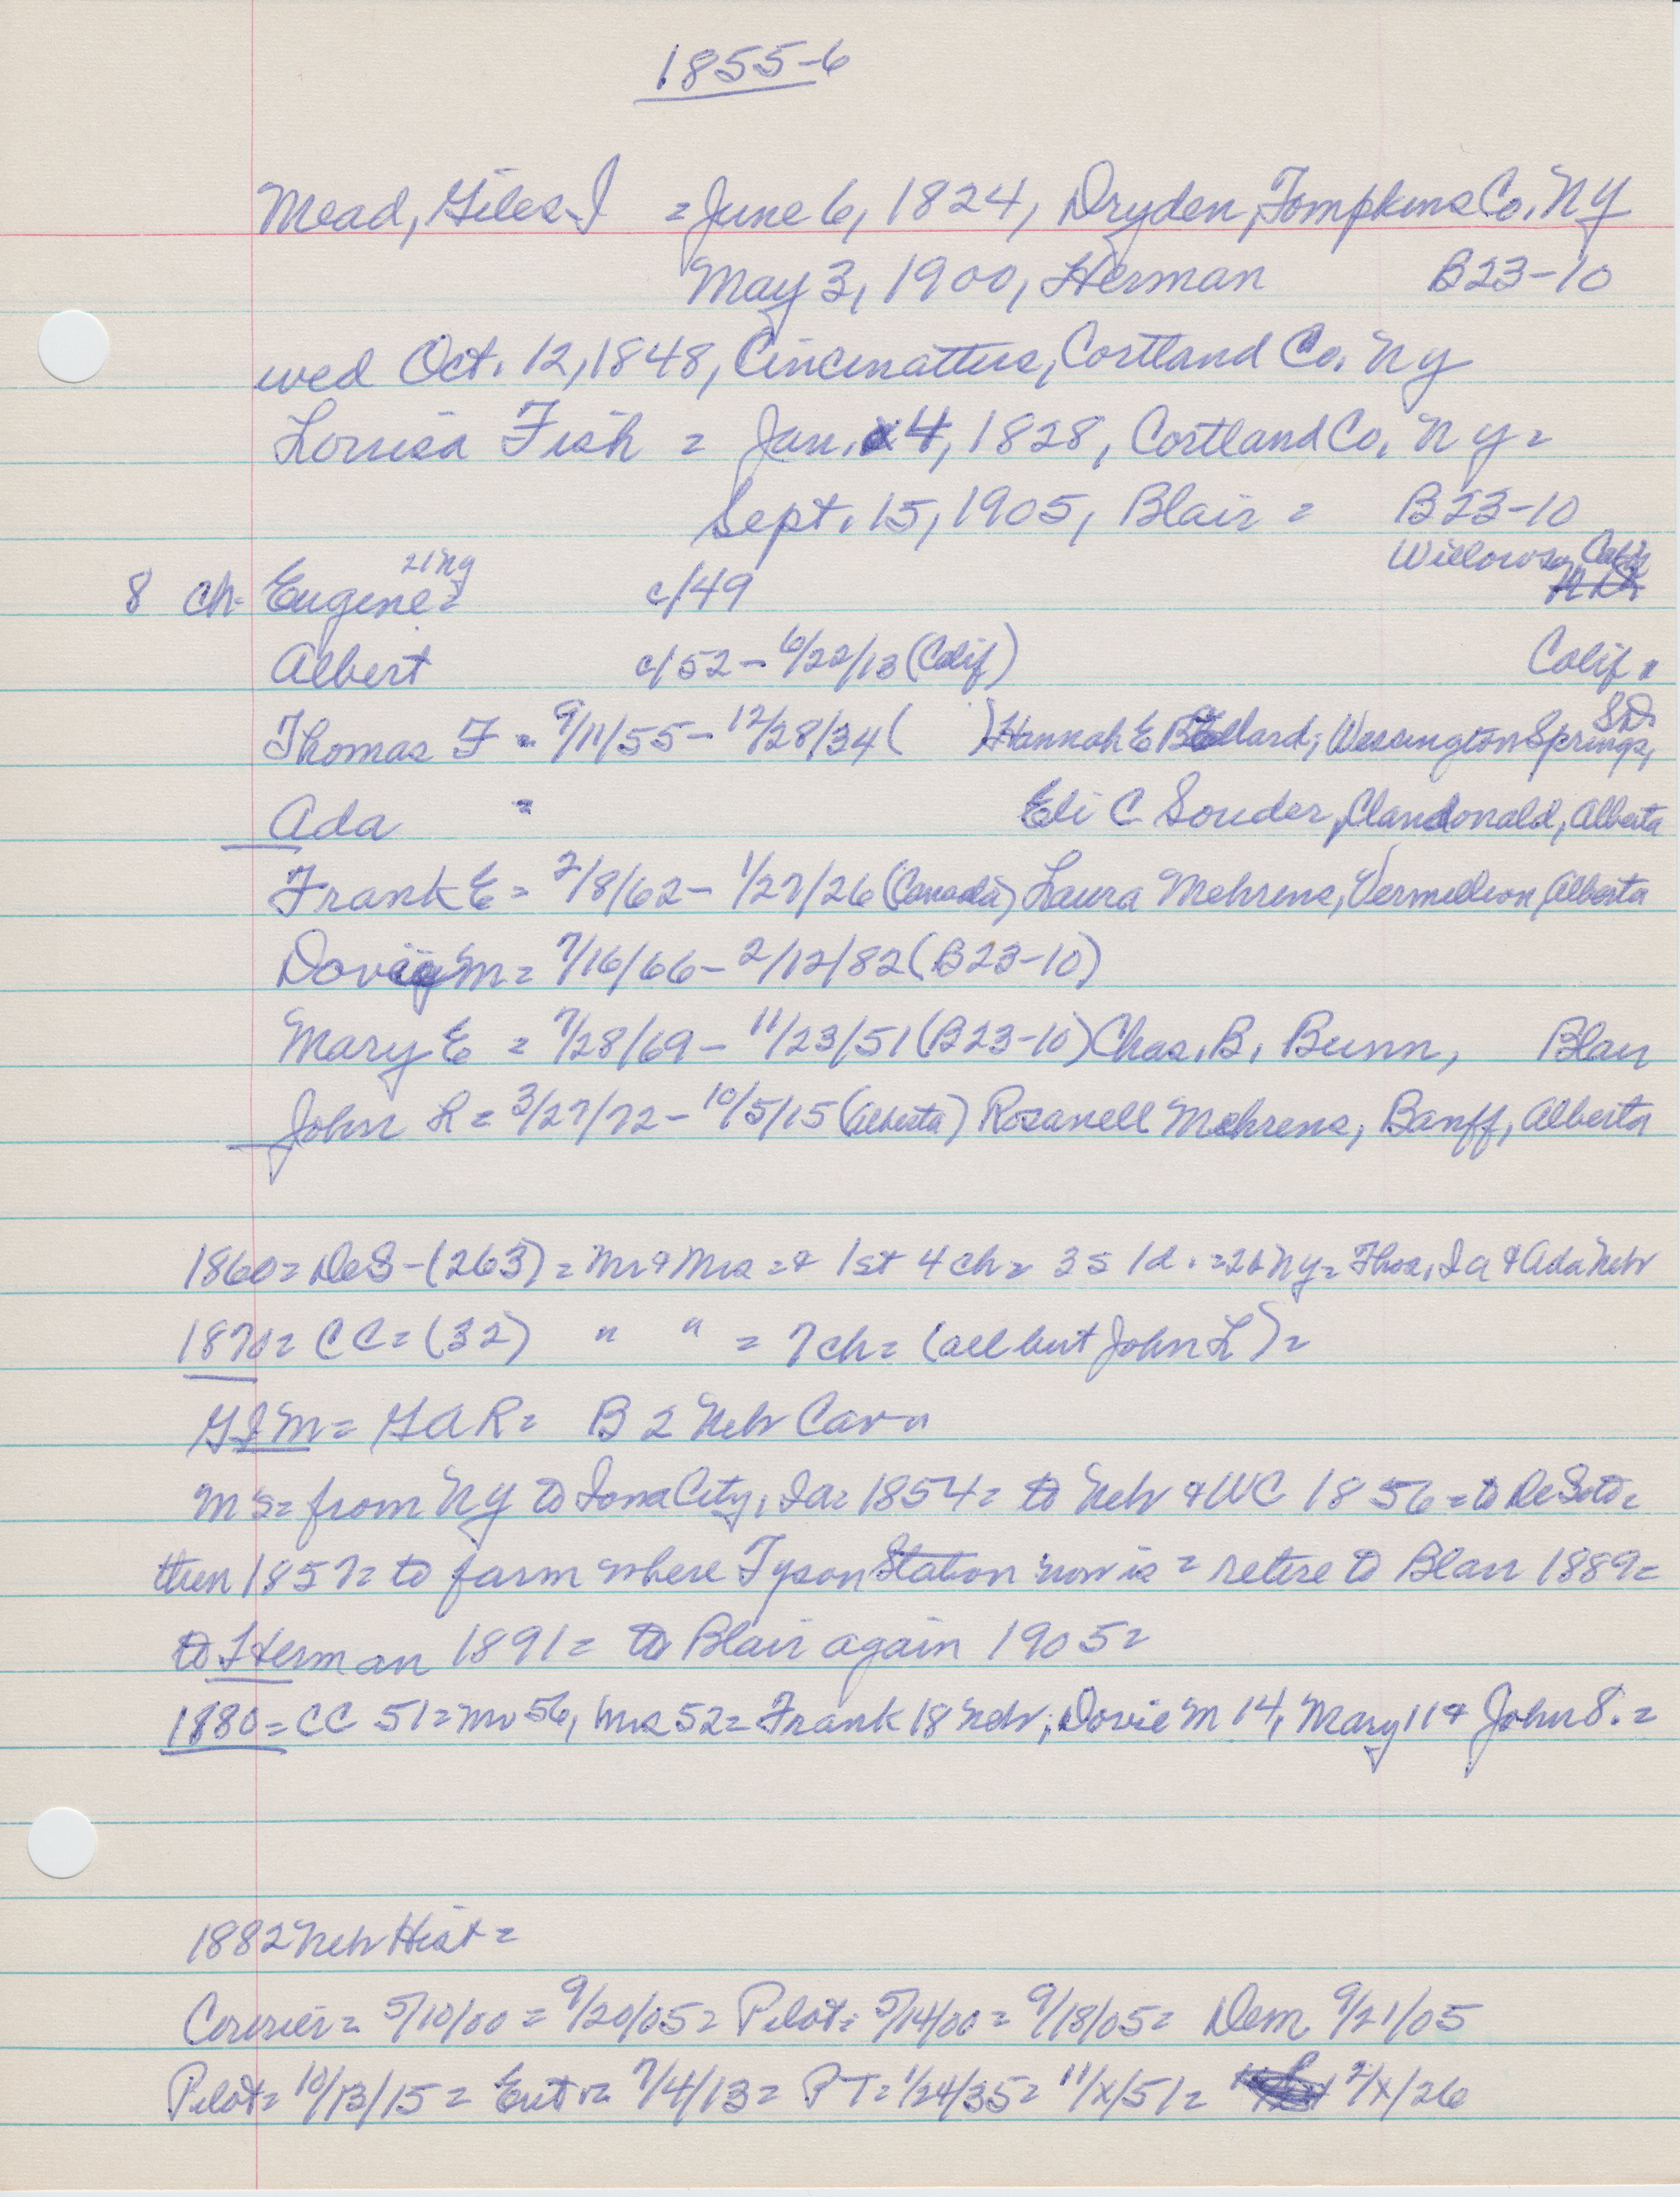 1855-6
Mead, Giles I = June 6, 1824, Dryden, Tompkins Co. NY
May 3, 1900, Herman B23-10
wed Oct. 12, 1848, Cincinattus, Cortland Co. NY
Louisa Fish = Jan. 4, 1828, Cortland Co. NY =
Sept. 15, 1905, Blair = B23-10
Willows, Calif
8 ch- Eugene = 21 Ny c/49
Albert c/52 - 6/22/13 (Calif) Calif.
Thomas F = 9/11/55 - 12/28/34 ( ) Hannah E Ballard; Wessington Springs, SD
Ada = Eli C Souder, Clandonald, Alberta
Frank E = 2/8/62 - 1/27/26 (Canada) Laura Mehrens, Vermillion, Alberta
Dovie M = 7/16/66 - 2/12/82 (B23-10)
Mary E = 7/28/69 - 11/23/51 (B23-10) Chas. B. Bunn, Blair
John L = 3/27/72 - 10/5/15 (Alberta) Rosanell Mehrens, Banff, Alberta
1860 = DeS - (263) = Mr & Mrs = & 1st 4 ch = 35 1d. = 26 NY = Thos, Ia & Ada Nebr
1870 = CC = (32) " " = 7 ch = (all but John L) =
GIM = GAR = B 2 Nebr Cav =
Ms = from NY to Iowa City, Ia = 1854 = to Nebr & WC 1856 = to DeSoto =
then 1857 = to farm where Tyson Station now is = retire to Blair 1889 =
to Herman 1891 = to Blair again 1905 =
1880 = CC 51 = Mr 56, Mrs 52 = Frank 18 Nebr; Dovie M 14, Mary 11 & John 8. =
1882 Nebr Hist =
Courier = 5/10/00 = 9/20/05 = Pilot = 5/14/00 = 9/18/05 = Dem 9/21/05
Pilot = 10/13/15 = Entr = 7/4/13 = PT = 1/24/35 = 11/x/51 = 2/x/26